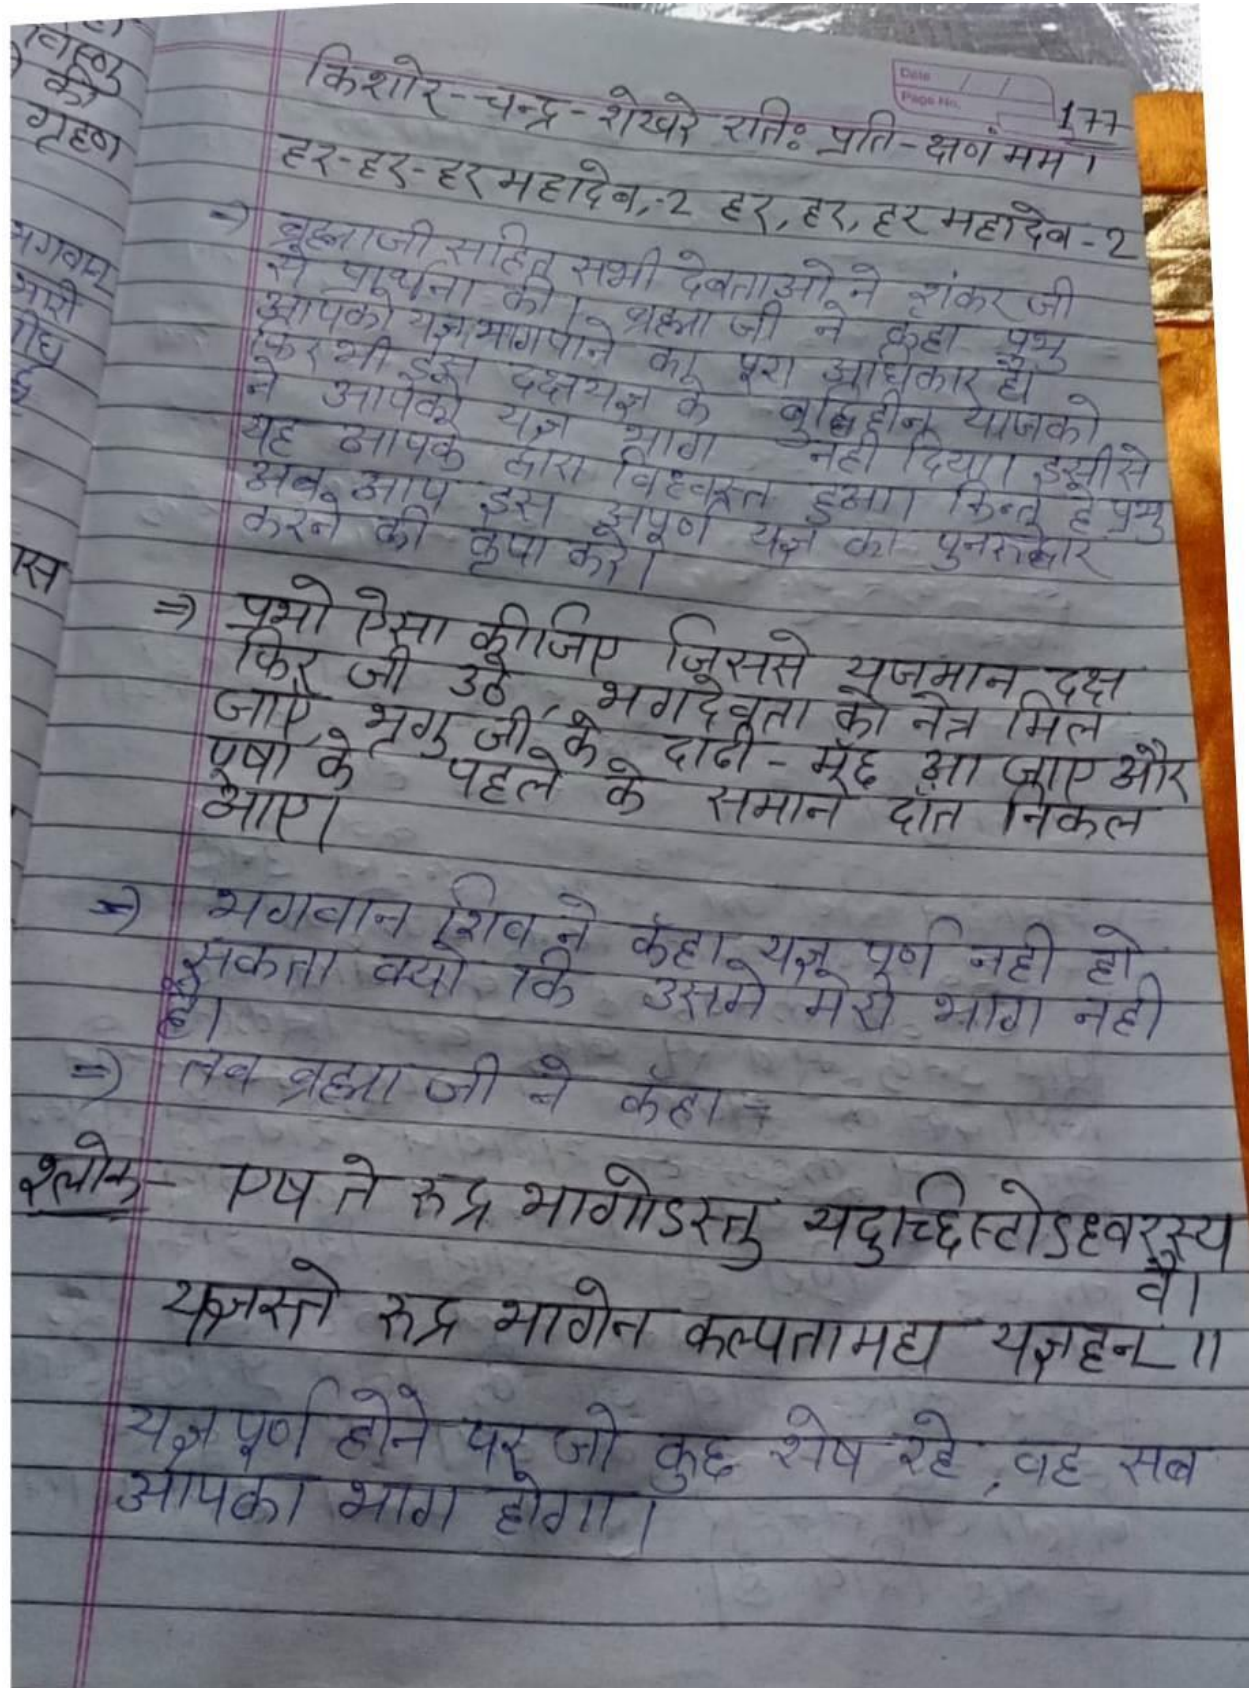 Date
Page No.
177
किशोर-चन्द्र-शेखरे रतिः प्रति-क्षणं मम।
हर-हर-हर महादेव,-2 हर, हर, हर महादेव-2
⇒ ब्रह्माजी सहित सभी देवताओ ने शंकर जी
से प्रार्थना की। ब्रह्मा जी ने कहा प्रभु
आपको यज्ञभाग पाने का पूरा अधिकार है।
फिर भी इस दक्षयज्ञ के बुद्धिहीन याजको
ने आपको यज्ञ भाग नही दिया। इसीसे
यह आपके द्वारा विध्वस्त हुआ। किन्तु हे प्रभु
अब आप इस अपूर्ण यज्ञ का पुनरुद्धार
करने की कृपा करे।
⇒ प्रभो ऐसा कीजिए जिससे यजमान दक्ष
फिर जी उठे, भगदेवता को नेत्र मिल
जाए, भृगु जी के दाढी-मूँछ आ जाए और
पूषा के पहले के समान दाँत निकल
आए।
⇒ भगवान शिव ने कहा यज्ञ पूर्ण नही हो
सकता क्यो कि उसमे मेरा भाग नही
है।
⇒ तब ब्रह्मा जी ने कहा -
श्लोक- एष ते रुद्र भागोऽस्तु यदुच्छिस्टोऽध्वरस्य
वै।
यज्ञस्ते रुद्र भागेन कल्पतामद्य यज्ञहन् ॥
यज्ञ पूर्ण होने पर जो कुछ शेष रहे, वह सब
आपका भाग होगा।
की
गृहण
भगवान